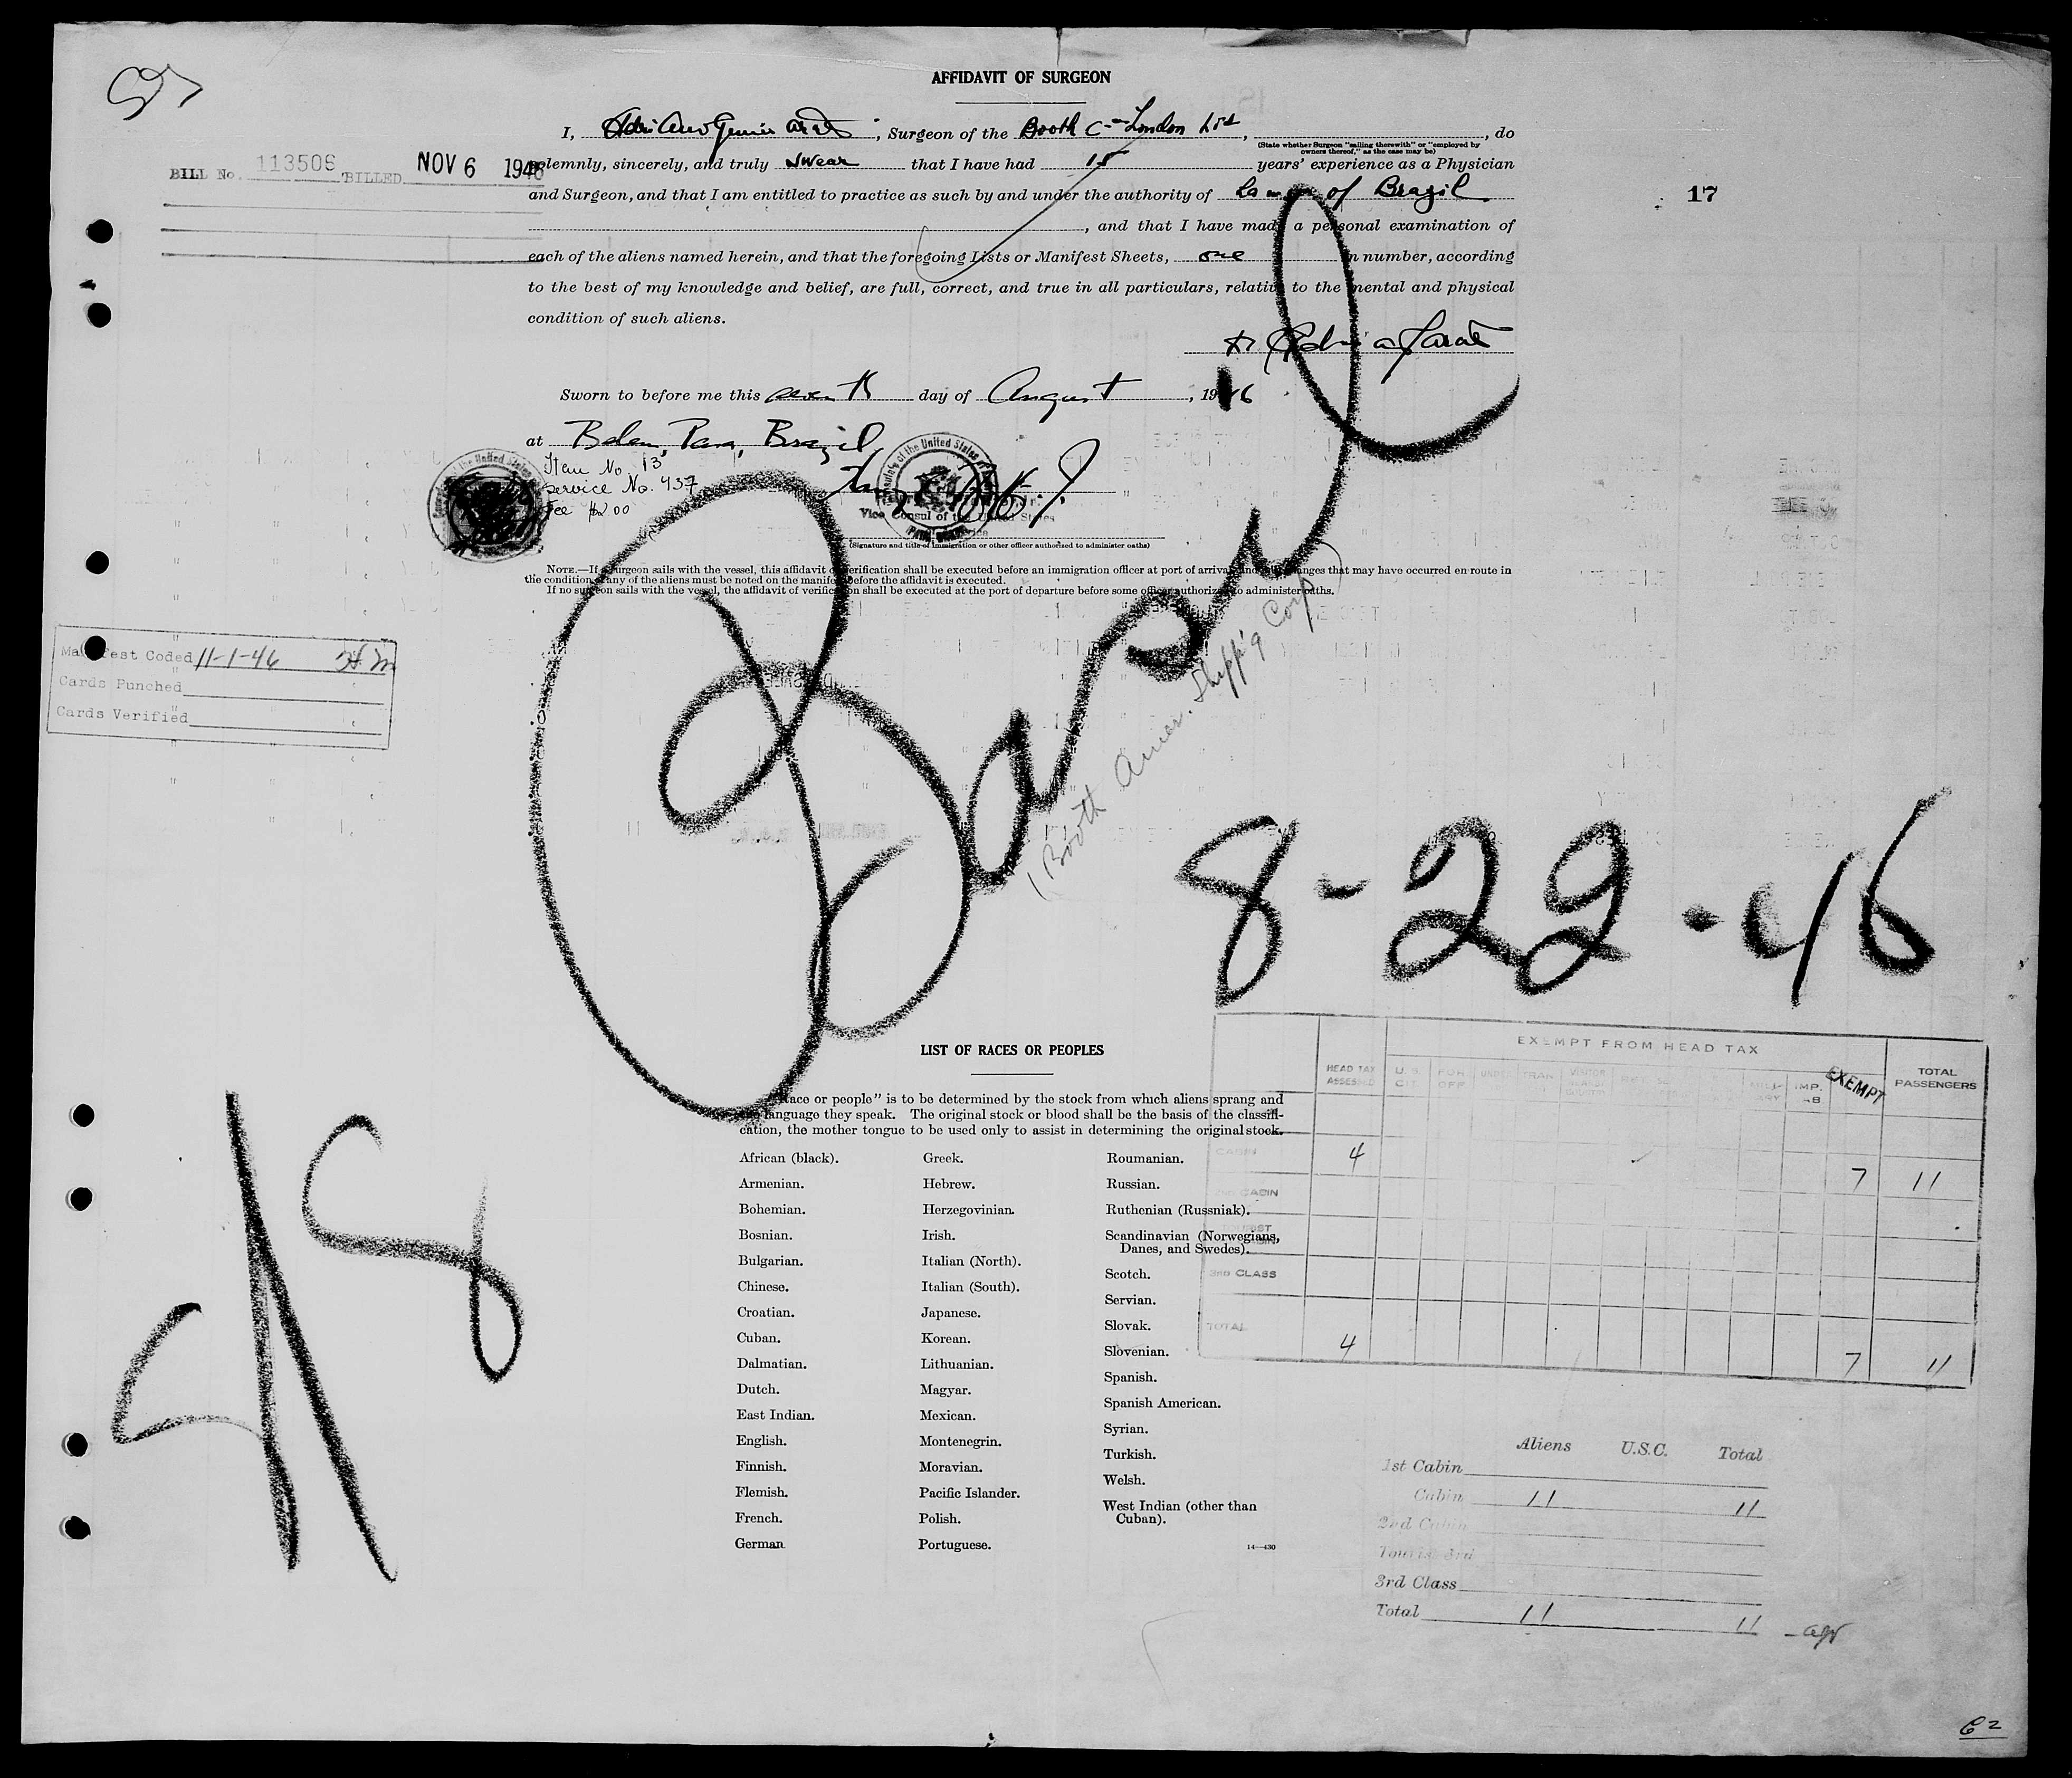 AFFIDAVIT OF SURGEON
I, , Surgeon of the Booth Co London Ltd, , do
(State whether Surgeon "sailing therewith" or "employed by owners thereof," as the case may be)
solemnly, sincerely, and truly swear that I have had 15 years' experience as a Physician
BILL No. 113506 BILLED NOV 6 1946
and Surgeon, and that I am entitled to practice as such by and under the authority of of Brazil
17
, and that I have made a personal examination of
each of the aliens named herein, and that the foregoing Lists or Manifest Sheets, one in number, according
to the best of my knowledge and belief, are full, correct, and true in all particulars, relative to the mental and physical
condition of such aliens.
Sworn to before me this seventh day of August , 1946
at Belem, Para, Brazil
Item No. 13
Service No. 437
Fee
Vice Consul of the United States
(Signature and title of immigration or other officer authorized to administer oaths)
NOTE.—If a surgeon sails with the vessel, this affidavit of verification shall be executed before an immigration officer at port of arrival and any changes that may have occurred en route in
the condition of any of the aliens must be noted on the manifest before the affidavit is executed.
If no surgeon sails with the vessel, the affidavit of verification shall be executed at the port of departure before some officer authorized to administer oaths.
Manifest Coded 11-1-46
Cards Punched
Cards Verified
Brazil
(Booth Amer. Shipp'g Corp
8-22-46
LIST OF RACES OR PEOPLES
"Race or people" is to be determined by the stock from which aliens sprang and
the language they speak. The original stock or blood shall be the basis of the classifi-
cation, the mother tongue to be used only to assist in determining the original stock.
African (black).
Armenian.
Bohemian.
Bosnian.
Bulgarian.
Chinese.
Croatian.
Cuban.
Dalmatian.
Dutch.
East Indian.
English.
Finnish.
Flemish.
French.
German
Greek.
Hebrew.
Herzegovinian.
Irish.
Italian (North).
Italian (South).
Japanese.
Korean.
Lithuanian.
Magyar.
Mexican.
Montenegrin.
Moravian.
Pacific Islander.
Polish.
Portuguese.
Roumanian.
Russian.
Ruthenian (Russniak).
Scandinavian (Norwegians,
Danes, and Swedes).
Scotch.
Servian.
Slovak.
Slovenian.
Spanish.
Spanish American.
Syrian.
Turkish.
Welsh.
West Indian (other than
Cuban).
14—430
EXEMPT FROM HEAD TAX
HEAD TAX ASSESSED U.S. CIT. FOR OFF TRAN IMP. EXEMPT TOTAL PASSENGERS
CABIN 4 7 11
2nd CABIN
TOURIST
3rd CLASS
TOTAL 4 7 11
Aliens U.S.C. Total
1st Cabin
Cabin 11 11
2nd Cabin
Tourist 3rd
3rd Class
Total 11 11
62